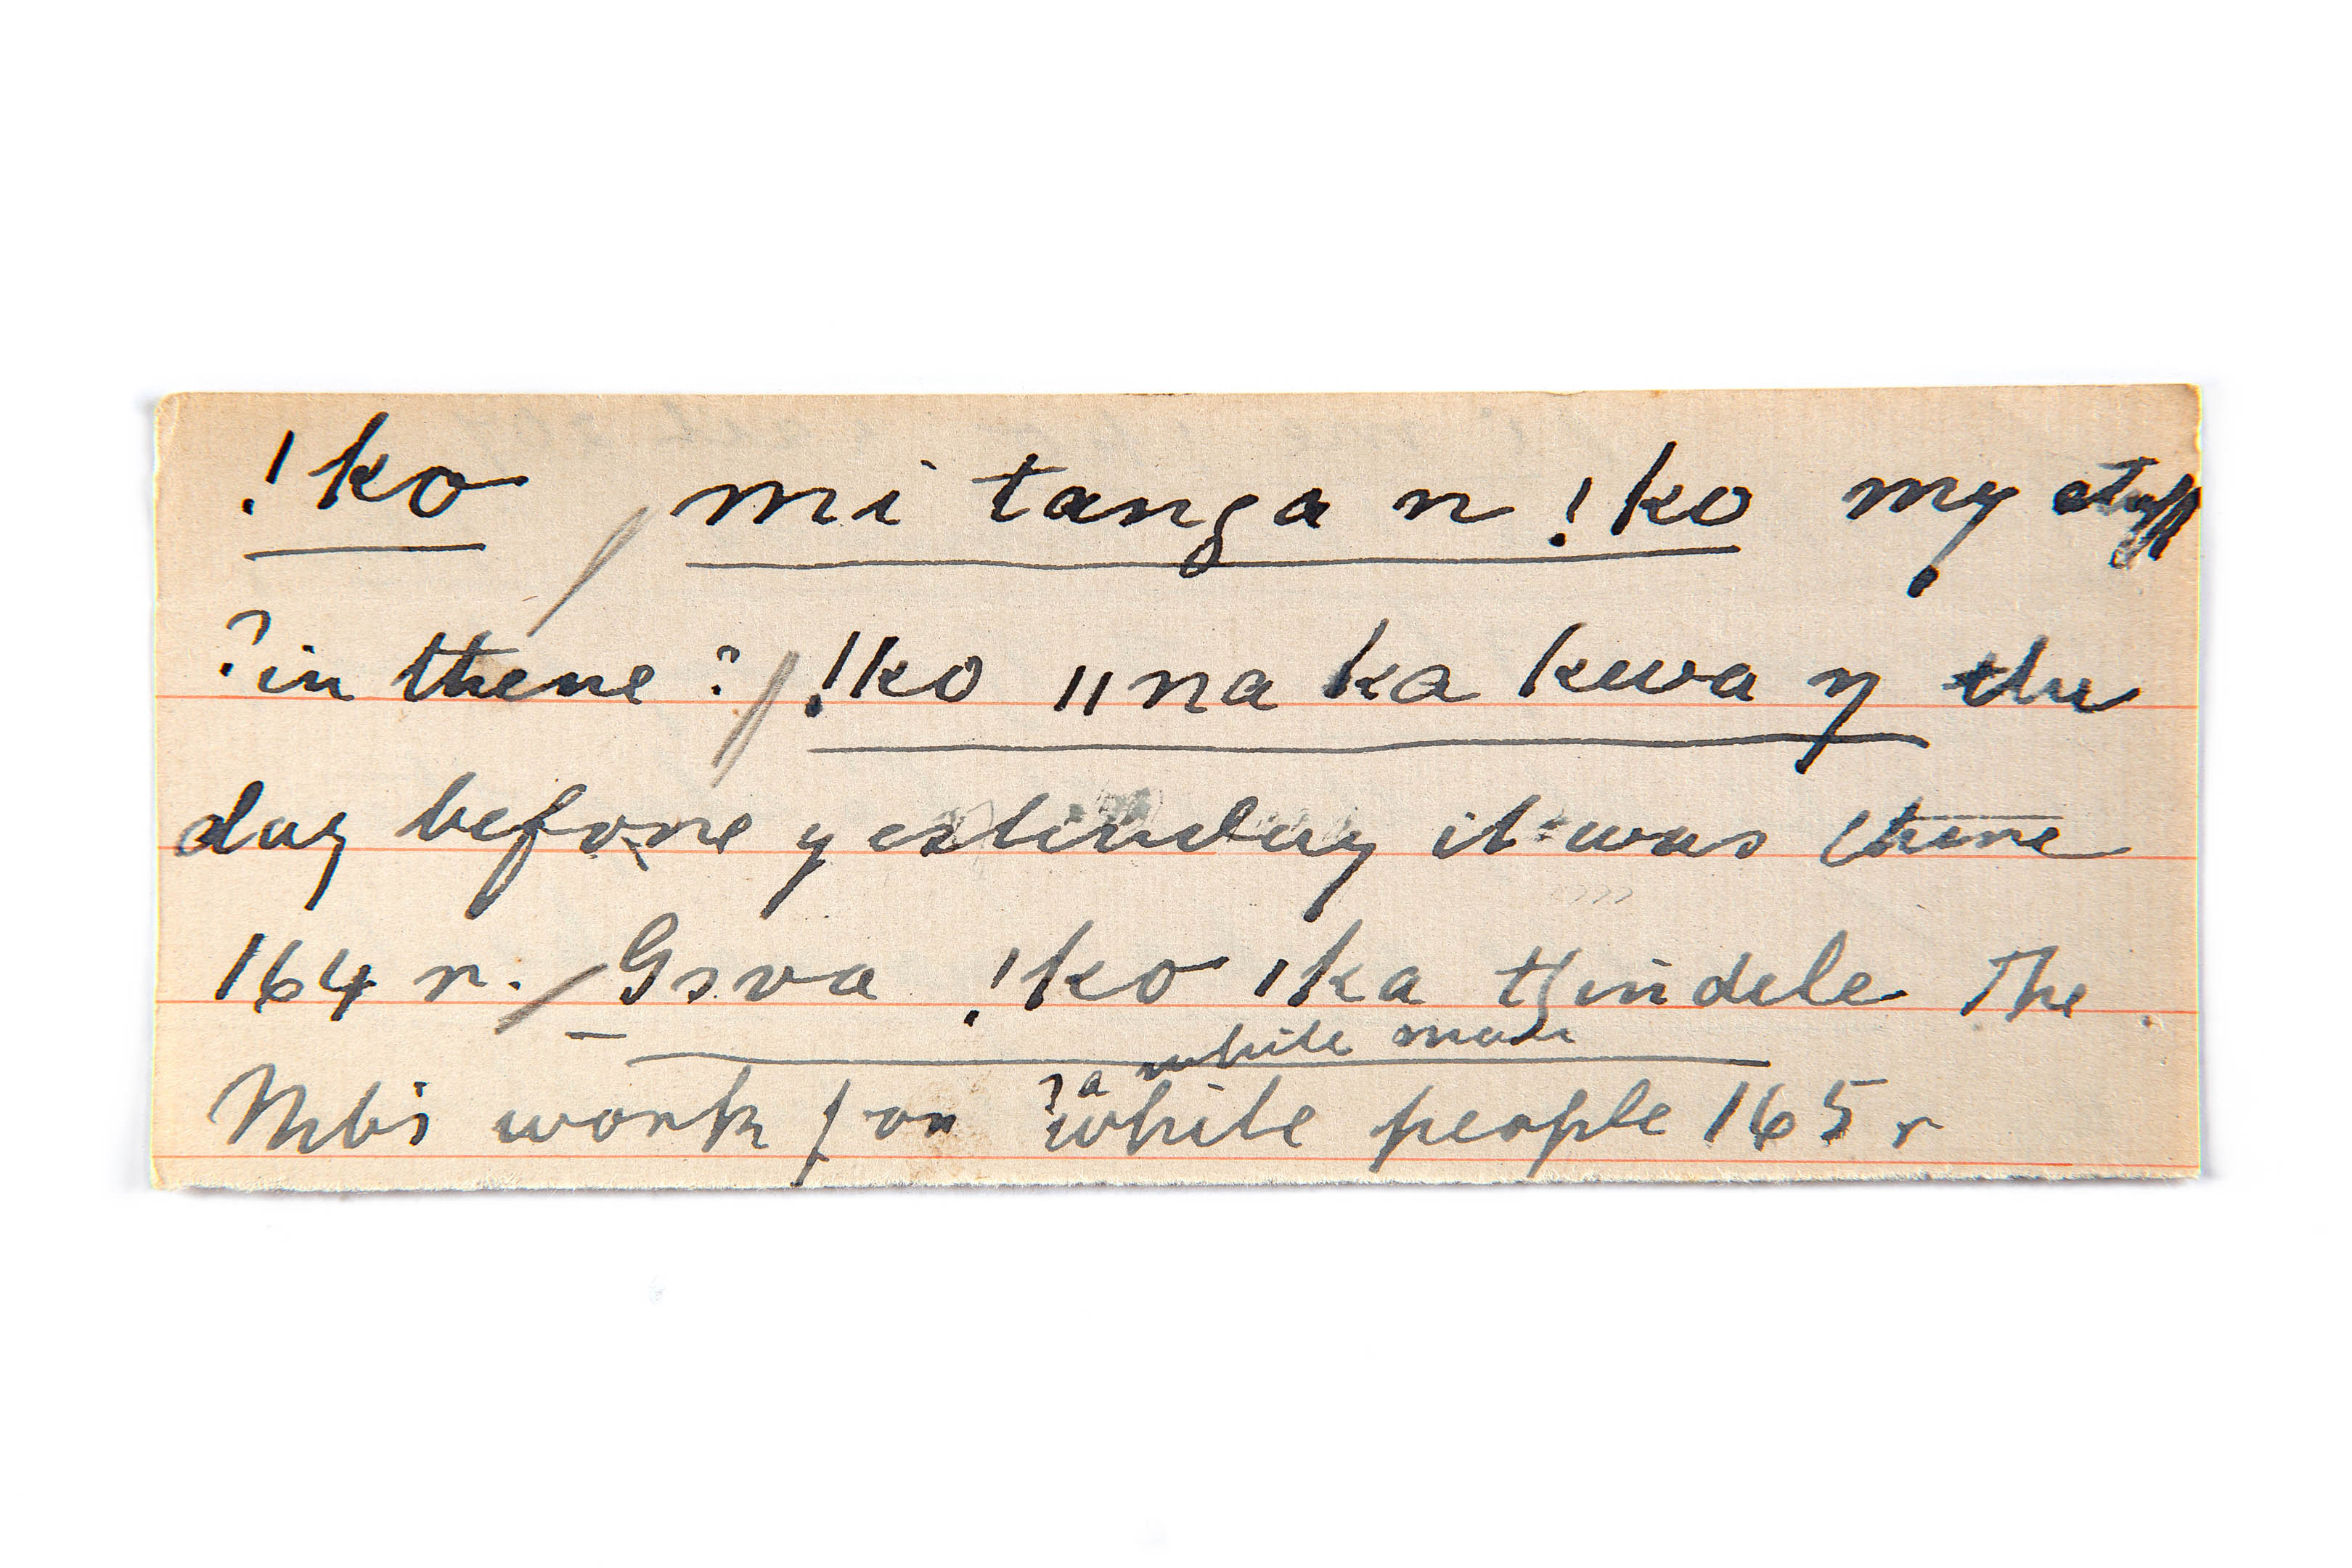 !ko / mi tanga n !ko my stuff
? in there ? // !ko ǁna ka kwa ŋ the
day before yesterday it was there
164 r. / Gova !ko ǀka tʃindele The
white man
? a
Mbi work for white people 165 r